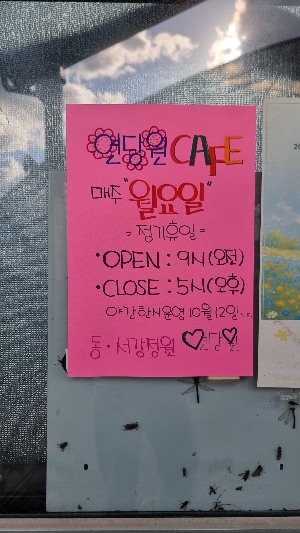 열당원 CAFE
매주 "월요일"
= 정기휴일 =
• OPEN : 9시 (오전)
• CLOSE : 5시 (오후)
야간한시운영 10월 12일
동·서강정원